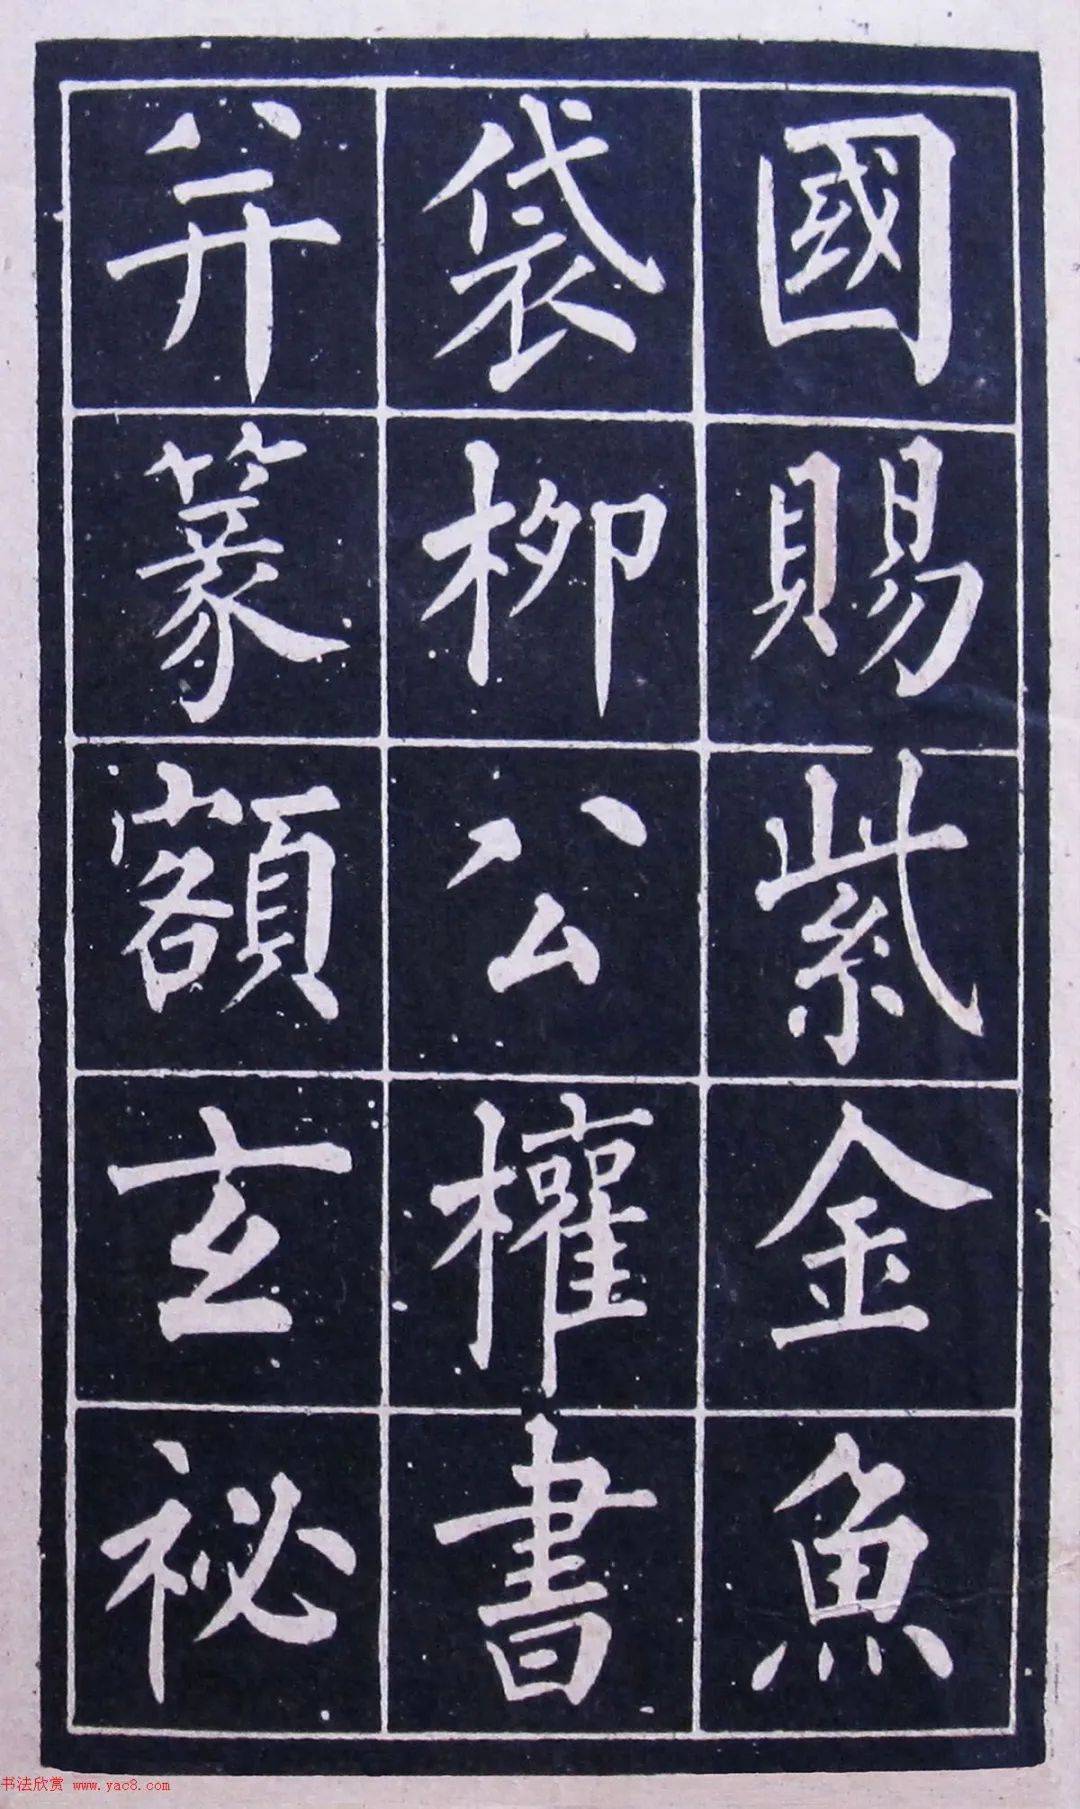 國賜紫金魚
袋柳公權書
并篆額玄祕
书法欣赏 www.yac8.com